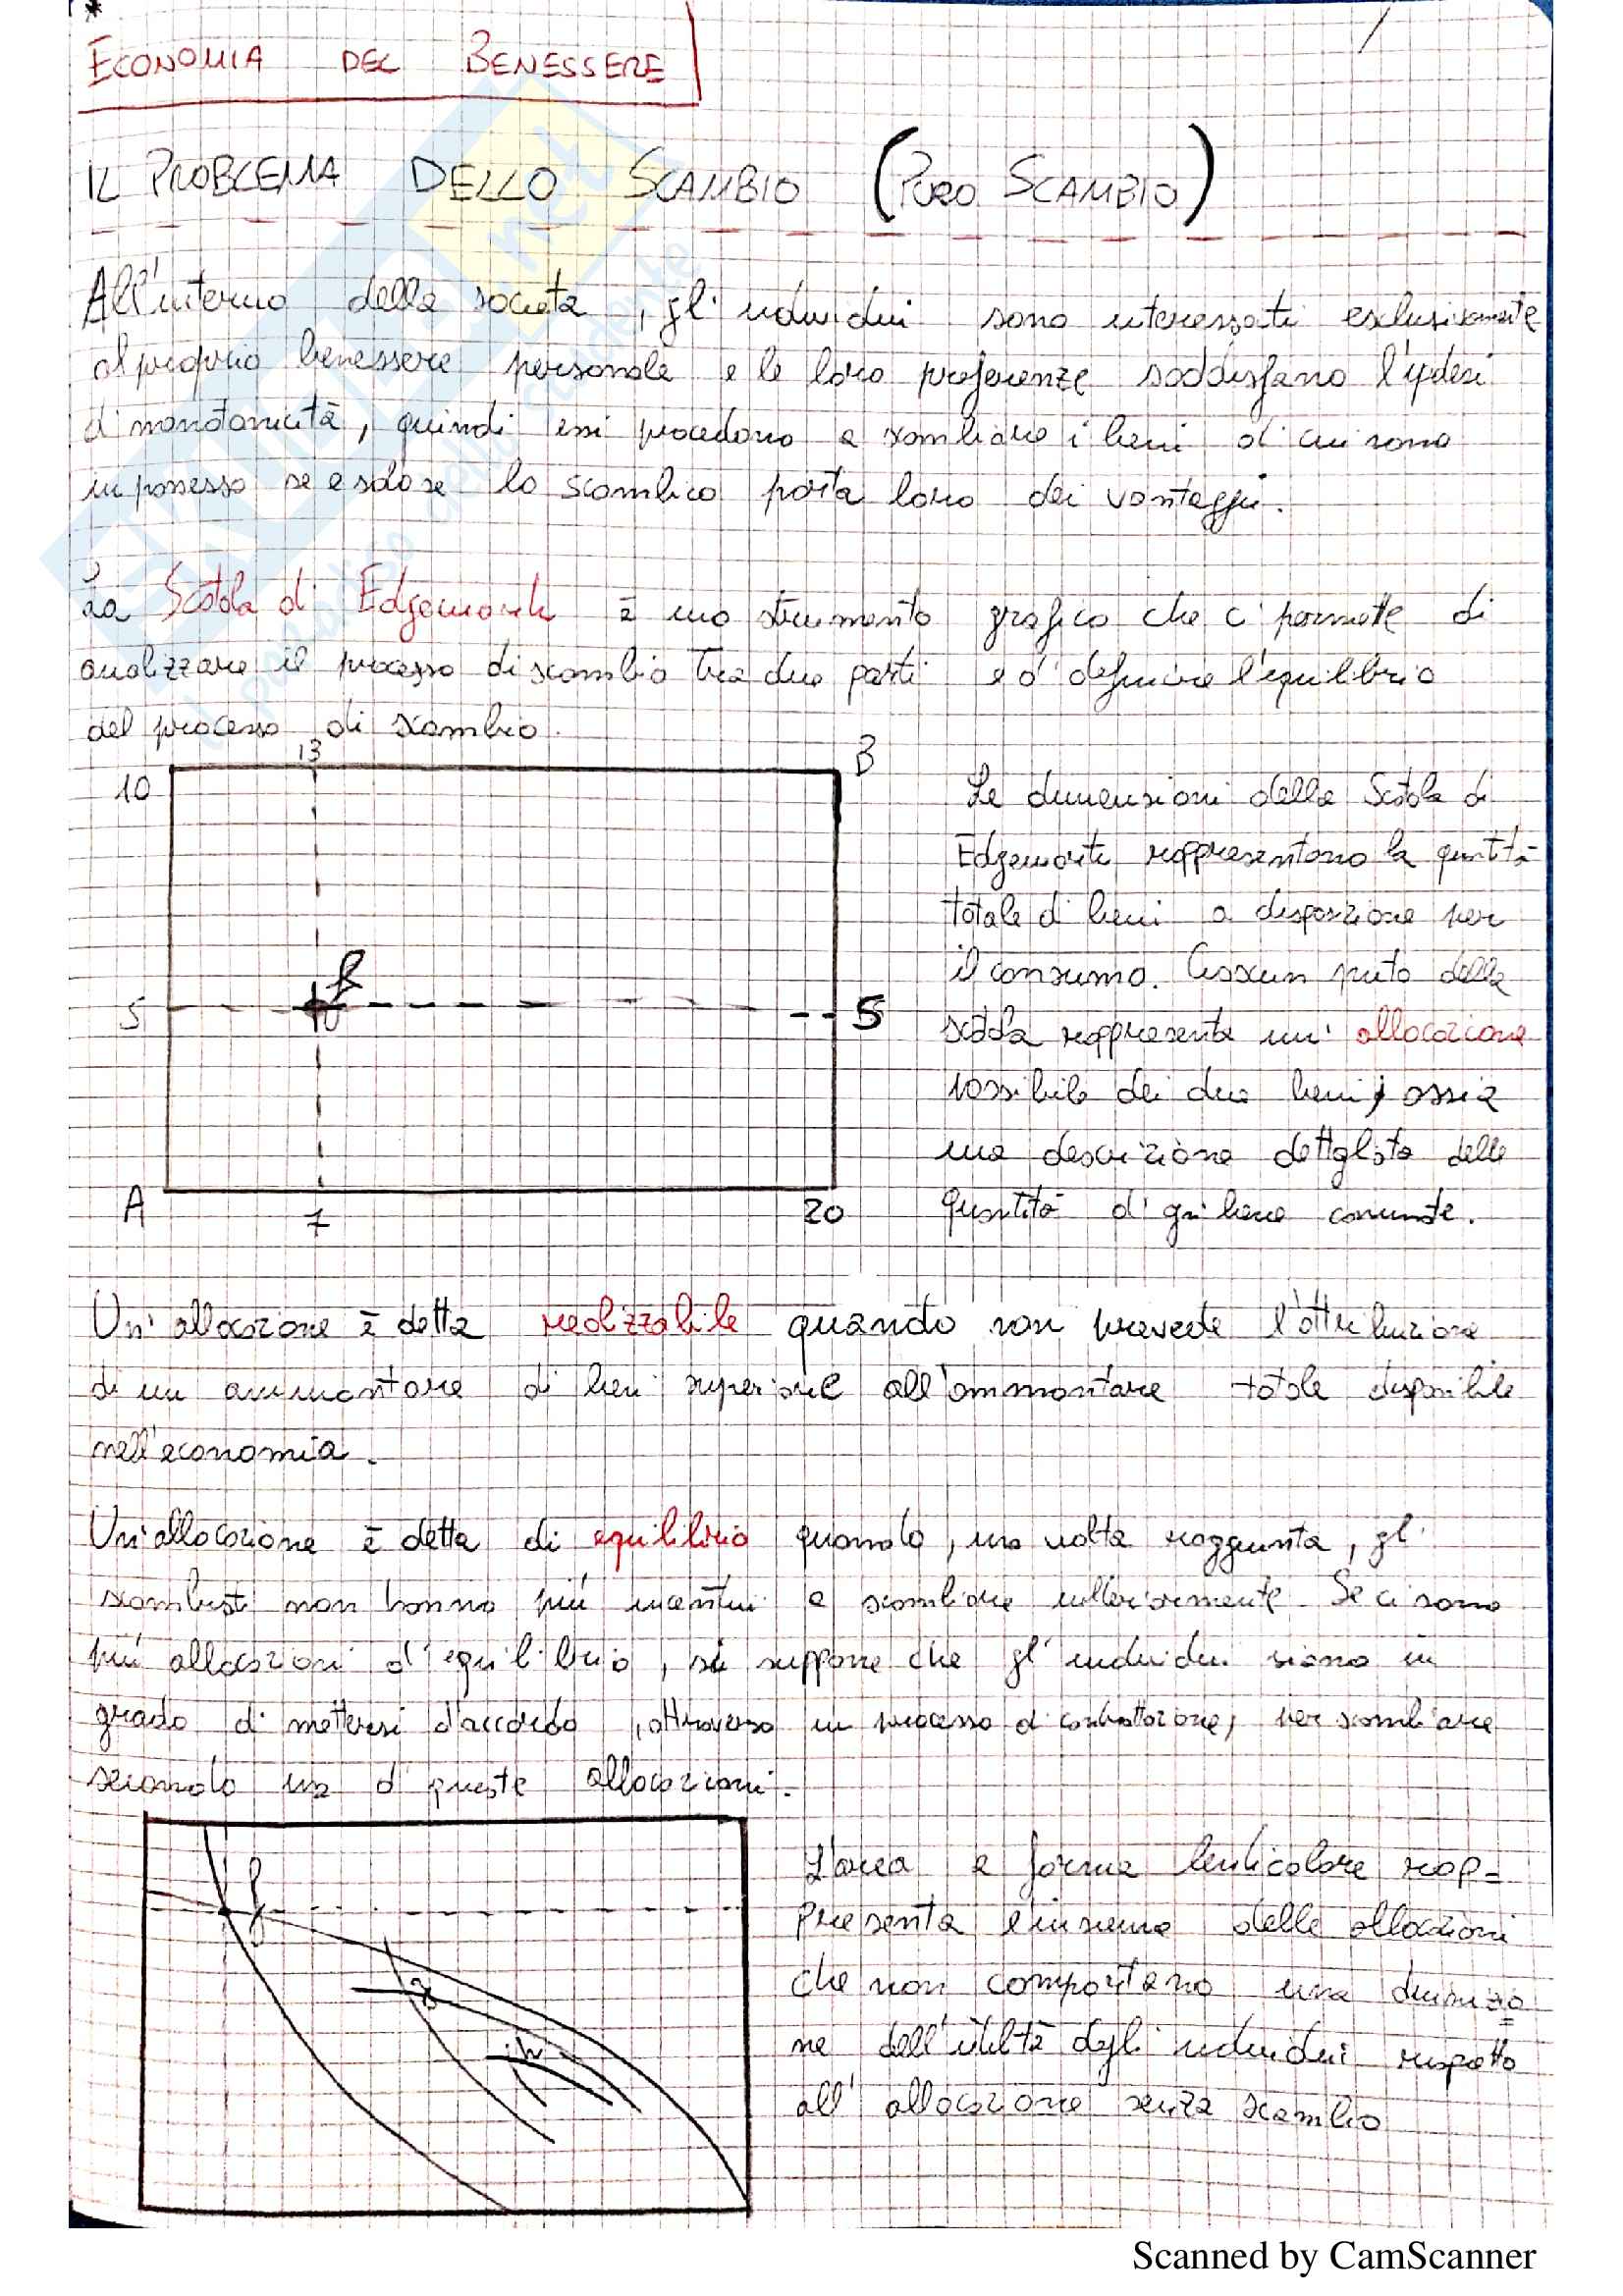 ECONOMIA DEL BENESSERE
IL PROBLEMA DELLO SCAMBIO (PURO SCAMBIO)
All'interno della società, gli individui sono interessati esclusivamente
al proprio benessere personale e le loro preferenze soddisfano l'ipotesi
di monotonicità, quindi essi procedono a scambiare i beni di cui sono
in possesso se e solo se lo scambio porta loro dei vantaggi.
La Scatola di Edgeworth è uno strumento grafico che ci permette di
analizzare il processo di scambio tra due parti e di definire l'equilibrio
del processo di scambio.
13
B
10
5
5
A
7
20
Le dimensioni della Scatola di
Edgeworth rappresentano la quantità
totale di beni a disposizione per
il consumo. Ciascun punto della
scatola rappresenta un' allocazione
possibile dei due beni, ossia
una descrizione dettagliata delle
quantità di ogni bene consumate.
Un' allocazione è detta realizzabile quando non prevede l'attribuzione
di un ammontare di beni superiore all'ammontare totale disponibile
nell'economia.
Un'allocazione è detta di equilibrio quando, una volta raggiunta, gli
scambisti non hanno più incentivi a scambiare ulteriormente. Se ci sono
più allocazioni d'equilibrio, si suppone che gli individui siano in
grado di mettersi d'accordo, attraverso un processo di contrattazione, per scambiare
secondo una di queste allocazioni.
L'area a forma lenticolare rap=
presenta l'insieme delle allocazioni
che non comportano una diminuzio=
ne dell'utilità degli individui rispetto
all' allocazione senza scambio
g
h
Scanned by CamScanner